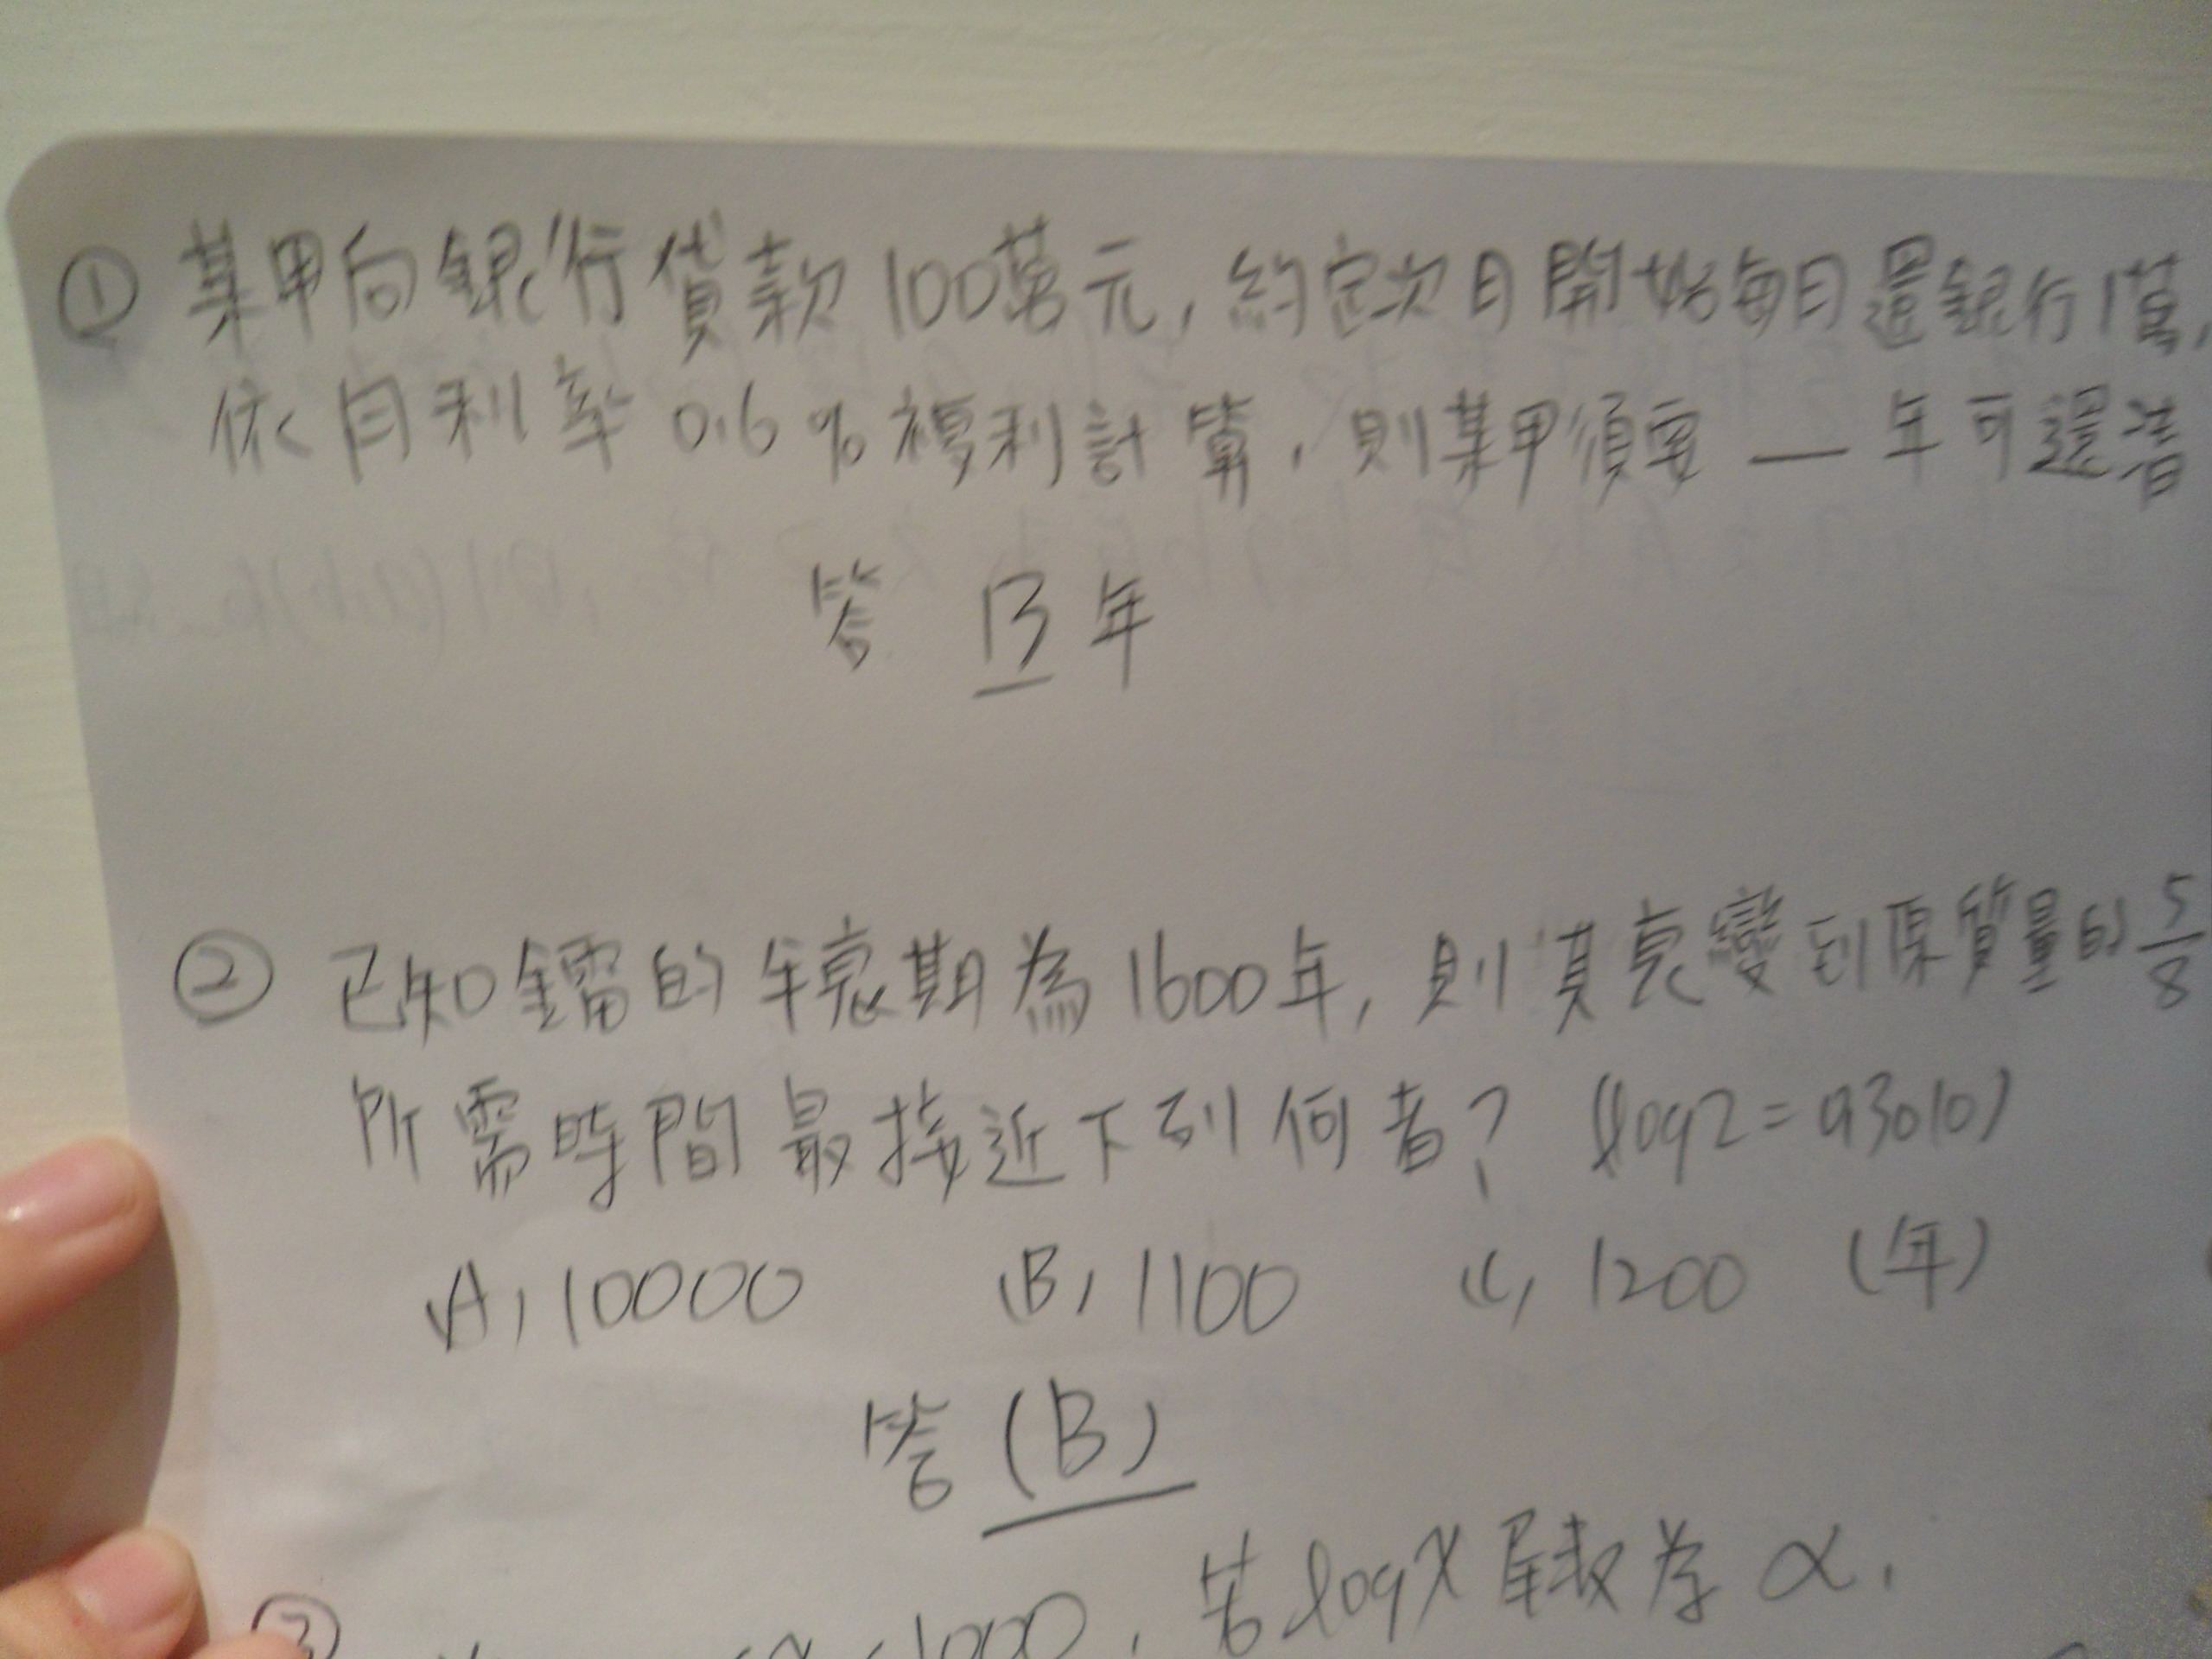 ① 某甲向銀行貸款100萬元,約定次月開始每月還銀行1萬,
依月利率0.6%複利計算,則某甲須要__年可還清
答 13年
② 已知鐳的半衰期為1600年,則其衰變到原質量的5/8
所需時間最接近下列何者? (log2=0.3010)
(A) 10000 (B) 1100 (C) 1200 (年)
答 (B)
③ 1000,若logx尾數為α,